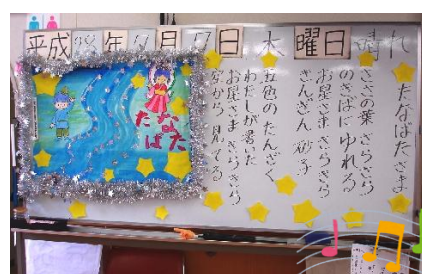 平成28年7月7日 木曜日 晴れ
たなばたさま
ささの葉 さらさら
のきばにゆれる
お星さま きらきら
きんぎん 砂子
五色のたんざく
わたしが書いた
お星さま きらきら
空から 見てる
たなばた